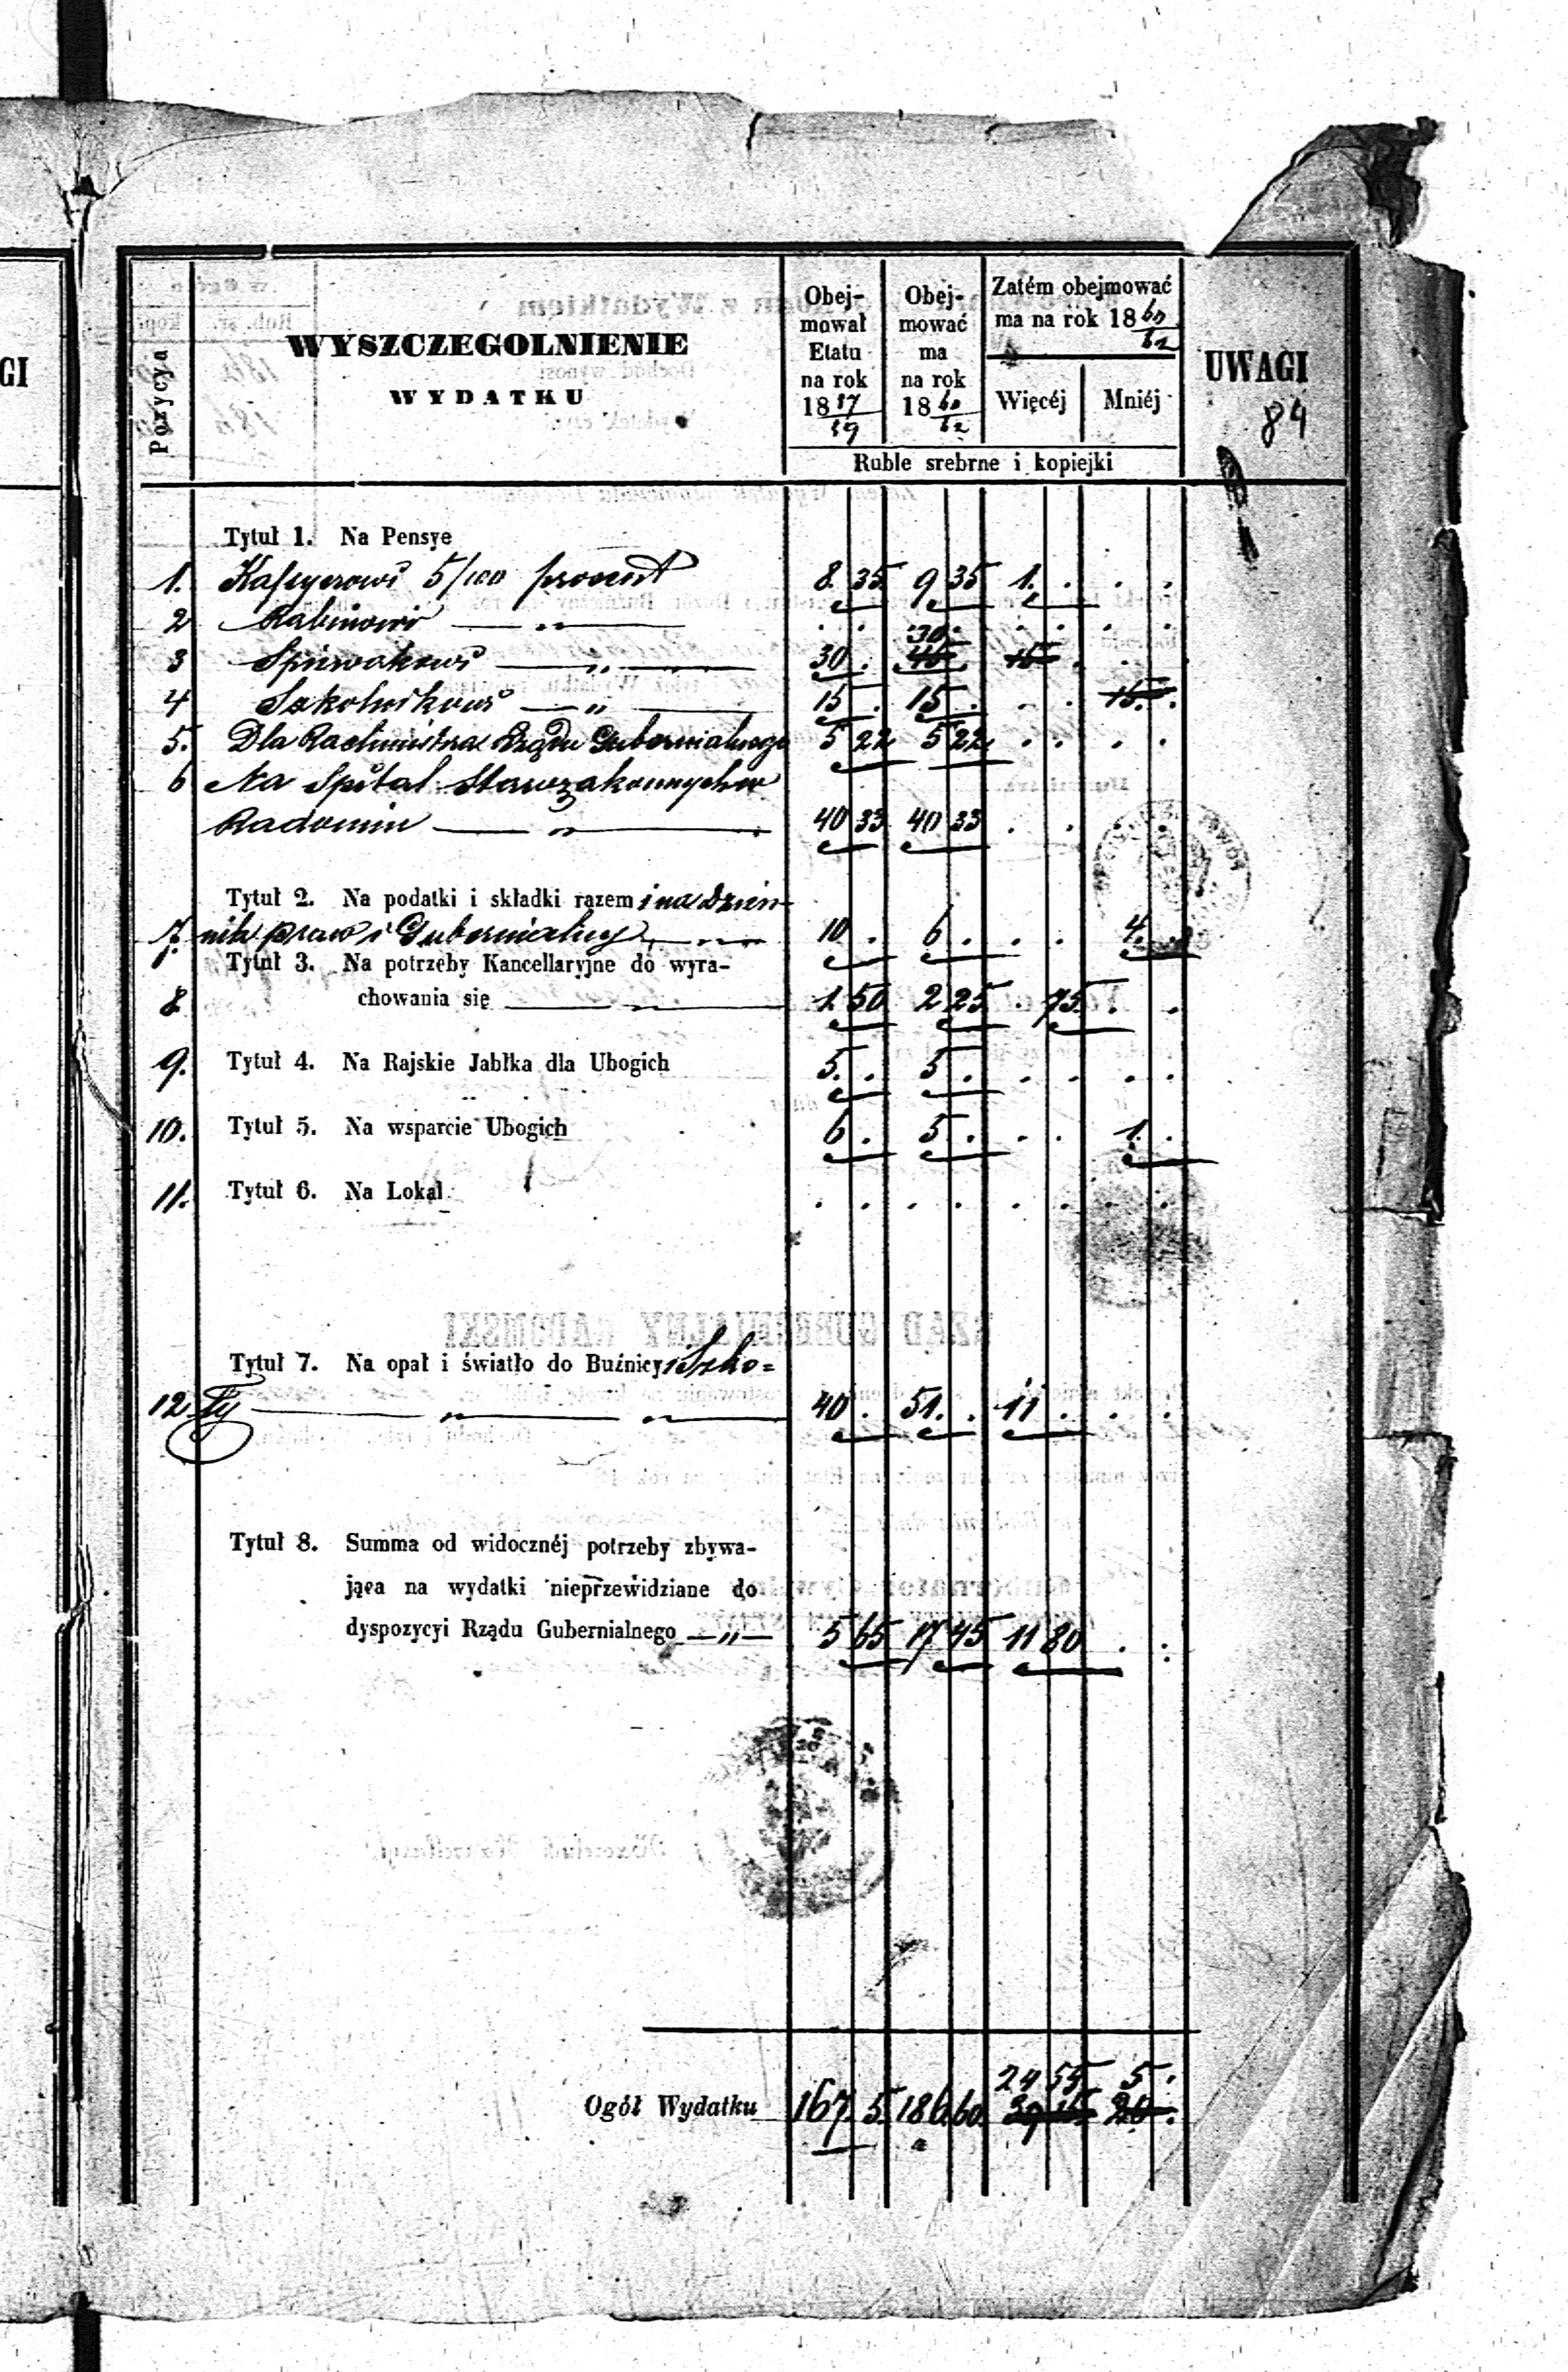 GI
Pozycya
WYSZCZEGOLNIENIE
WYDATKU
Obejmował Etatu na rok 18 57/59
Obejmować ma na rok 18 60/62
Zatém obejmować ma na rok 18 60/62
Więcéj
Mniéj
Ruble srebrne i kopiejki
UWAGI
84
Tytuł 1. Na Pensye
1. Kassyerowi 5/100 procent 8. 35 9 35 1. . . .
2 Rabinowi — „ — . . . . . . . .
30.
3 Spiewakowi — „ — 30 . 45 . 15 . . .
4 Szkolnikowi — „ — 15 . 15 . . . 15. .
5. Dla Rachmistrza Rządu Gubernialnego 5 22 5 22 . . . .
6 Na Szpital Starozakonnych w
Radomiu — „ — 40 33 40 33 . .
Tytuł 2. Na podatki i składki razem i na Dzien-
7. nik praw i Gubernialny — „ — 10 . 6 . . . 4. .
Tytuł 3. Na potrzeby Kancellaryjne do wyra-
8 chowania się — „ — 1. 50 2 25 . 75. . .
9. Tytuł 4. Na Rajskie Jabłka dla Ubogich 5. . 5 . . . . .
10. Tytuł 5. Na wsparcie Ubogich 6 . 5 . . . 1. .
11. Tytuł 6. Na Lokal . . . . . . . .
RZĄD GUBERNIALNY RADOMSKI
Tytuł 7. Na opał i światło do Buźnicy i Szko=
12 ły — „ — „ — 40 . 51. . 11 . . .
Tytuł 8. Summa od widocznéj potrzeby zbywa-
jąca na wydatki nieprzewidziane do
dyspozycyi Rządu Gubernialnego — „ — 5 65 17 45 11 80 . .
24 55 5 .
Ogół Wydatku 167. 5. 186. 60. 39 15 20 .